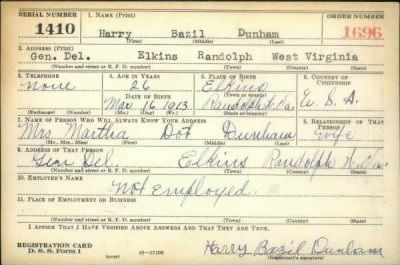 SERIAL NUMBER 1. NAME (Print) ORDER NUMBER
1410 Harry Bazil Dunham 1696
(First) (Middle) (Last)
2. ADDRESS (Print)
Gen. Del. Elkins Randolph West Virginia
(Number and street or R. F. D. number) (Town) (County) (State)
3. TELEPHONE 4. AGE IN YEARS 5. PLACE OF BIRTH 6. COUNTRY OF CITIZENSHIP
none 26 Elkins
DATE OF BIRTH (Town or county)
Mar 16 1913 Randolph W. Va. U. S. A.
(Exchange) (Number) (Mo.) (Day) (Yr.) (State or country)
7. NAME OF PERSON WHO WILL ALWAYS KNOW YOUR ADDRESS 8. RELATIONSHIP OF THAT PERSON
Mrs Martha Dot Dunham wife
(Mr., Mrs., Miss) (First) (Middle) (Last)
9. ADDRESS OF THAT PERSON
Gen Del. Elkins Randolph W. Va.
(Number and street or R. F. D. number) (Town) (County) (State)
10. EMPLOYER'S NAME
Not Employed.
11. PLACE OF EMPLOYMENT OR BUSINESS
(Number and street or R. F. D. number) (Town) (County) (State)
I AFFIRM THAT I HAVE VERIFIED ABOVE ANSWERS AND THAT THEY ARE TRUE.
REGISTRATION CARD
D. S. S. Form 1 16-17105 Harry Bazil Dunham
(Registrant's signature)